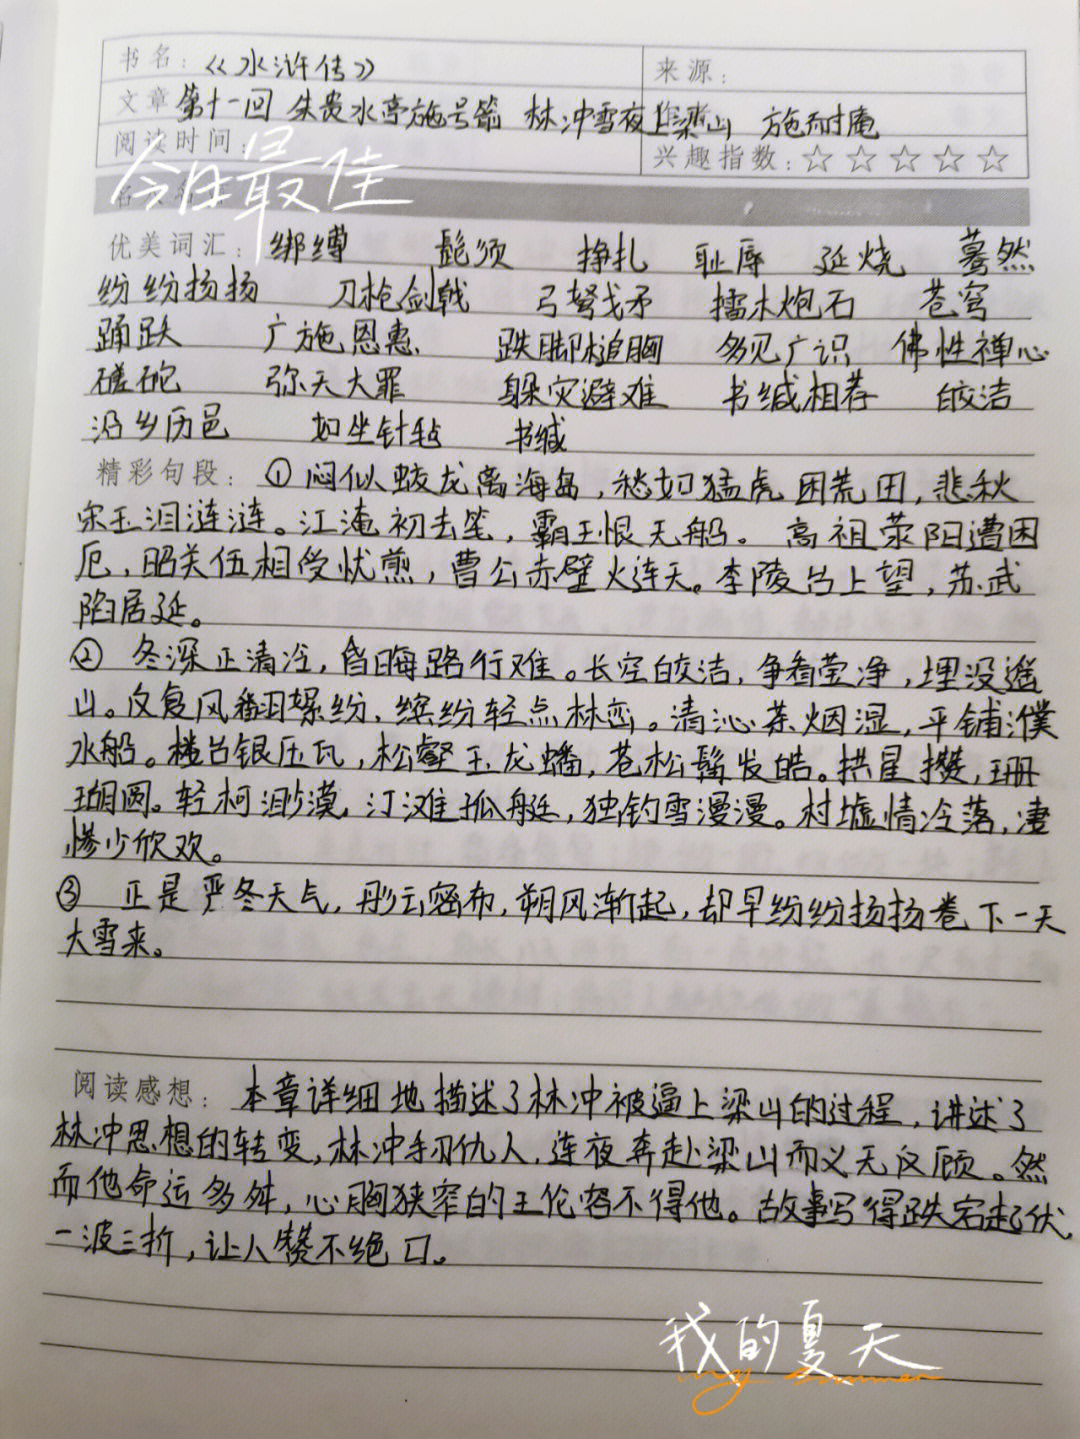 书名：《水浒传》
来源：
文章 第十一回 朱贵水亭施号箭 林冲雪夜上梁山 施耐庵
阅读时间：
兴趣指数：☆☆☆☆☆
今日最佳
优美词汇：绑缚 髭须 挣扎 耻辱 延烧 蓦然
纷纷扬扬 刀枪剑戟 弓弩戈矛 擂木炮石 苍穹
踊跃 广施恩惠 跌脚槌胸 多见广识 佛性禅心
磋砣 弥天大罪 躲灾避难 书缄相荐 皎洁
沿乡历邑 如坐针毡 书缄
精彩句段：①闷似蛟龙离海岛，愁如猛虎困荒田，悲秋
宋玉泪涟涟。江淹初去笔，霸王恨无船。高祖荥阳遭困
厄，昭关伍相受忧煎，曹公赤壁火连天。李陵台上望，苏武
陷居延。
② 冬深正清冷，昏晦路行难。长空皎洁，争看莹净，埋没遥
山。反复风翻絮纷，缤纷轻点林峦。清沁茶烟湿，平铺濮
水船。楼台银压瓦，松壑玉龙蟠，苍松髯发皓。拱星攒，珊
瑚圆。轻柯渺漠，汀滩孤艇，独钓雪漫漫。村墟情冷落，凄
惨少欣欢。
③ 正是严冬天气，彤云密布，朔风渐起，却早纷纷扬扬卷下一天
大雪来。
阅读感想：本章详细地描述了林冲被逼上梁山的过程，讲述了
林冲思想的转变，林冲手刃仇人，连夜奔赴梁山而义无反顾。然
而他命运多舛，心胸狭窄的王伦容不得他。故事写得跌宕起伏，
一波三折，让人赞不绝口。
我的夏天
my summer